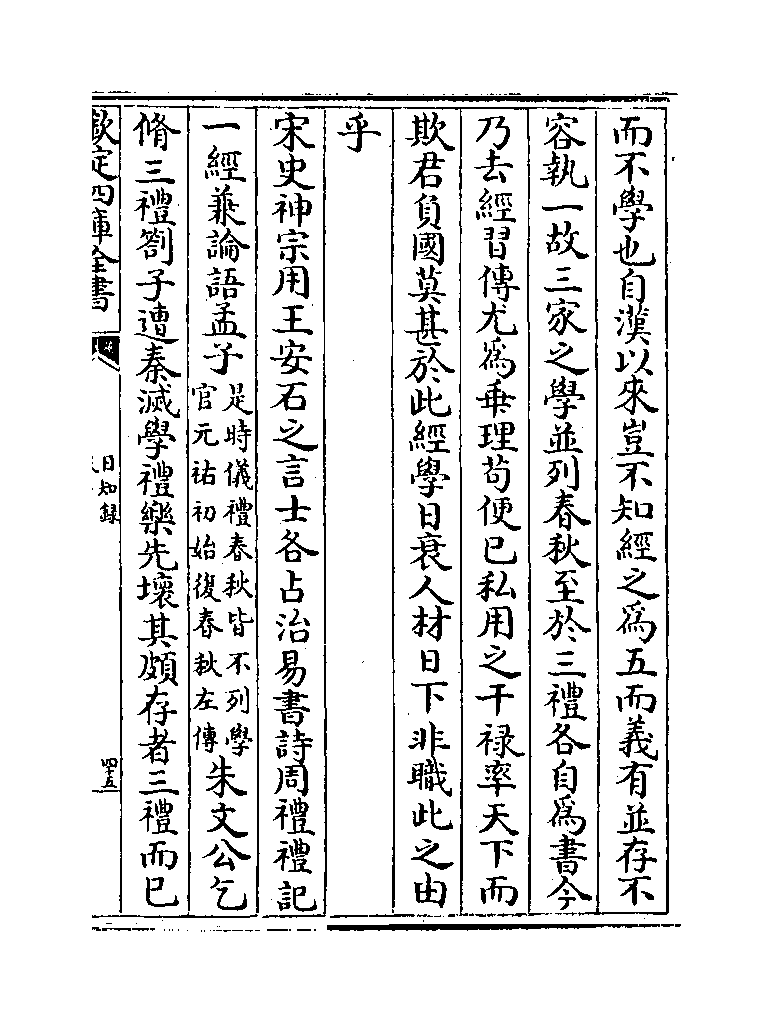 而不學也自漢以來豈不知經之為五而義有並存不
容執一故三家之學並列春秋至於三禮各自為書今
乃去經習傳尤為乖理苟便已私用之干禄率天下而
欺君負國莫甚於此經學日衰人材日下非職此之由
乎
宋史神宗用王安石之言士各占治易書詩周禮禮記
一經兼論語孟子是時儀禮春秋皆不列學官元祐初始復春秋左傳朱文公乞
脩三禮劄子遭秦滅學禮樂先壞其頗存者三禮而已
欽定四庫全書
日知録
四十五